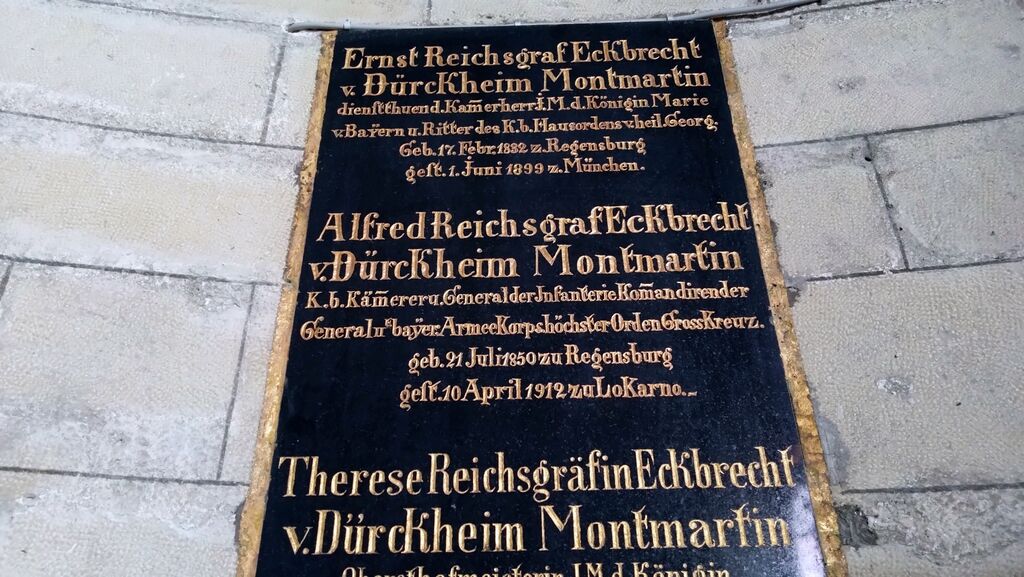 Ernst Reichsgraf Eckbrecht
v. Dürckheim Montmartin
dienstthuend. Kam̅erherr I. M. d. Königin Marie
v. Bayern u. Ritter des K. b. Hausordens v. heil. Georg,
Geb. 17. Febr. 1882 z. Regensburg
gest. 1. Juni 1899 z. München.
Alfred Reichsgraf Eckbrecht
v. Dürckheim Montmartin
K. b. Käm̅erer u. General der Infanterie Kom̅andirender
General II bayer. Armee Korps höchster Orden Gross Kreuz.
geb. 21 Juli 1850 zu Regensburg
gest. 10 April 1912 zu Lokarno.
Therese Reichsgräfin Eckbrecht
v. Dürckheim Montmartin
Obersthofmeisterin I. M. d. Königin